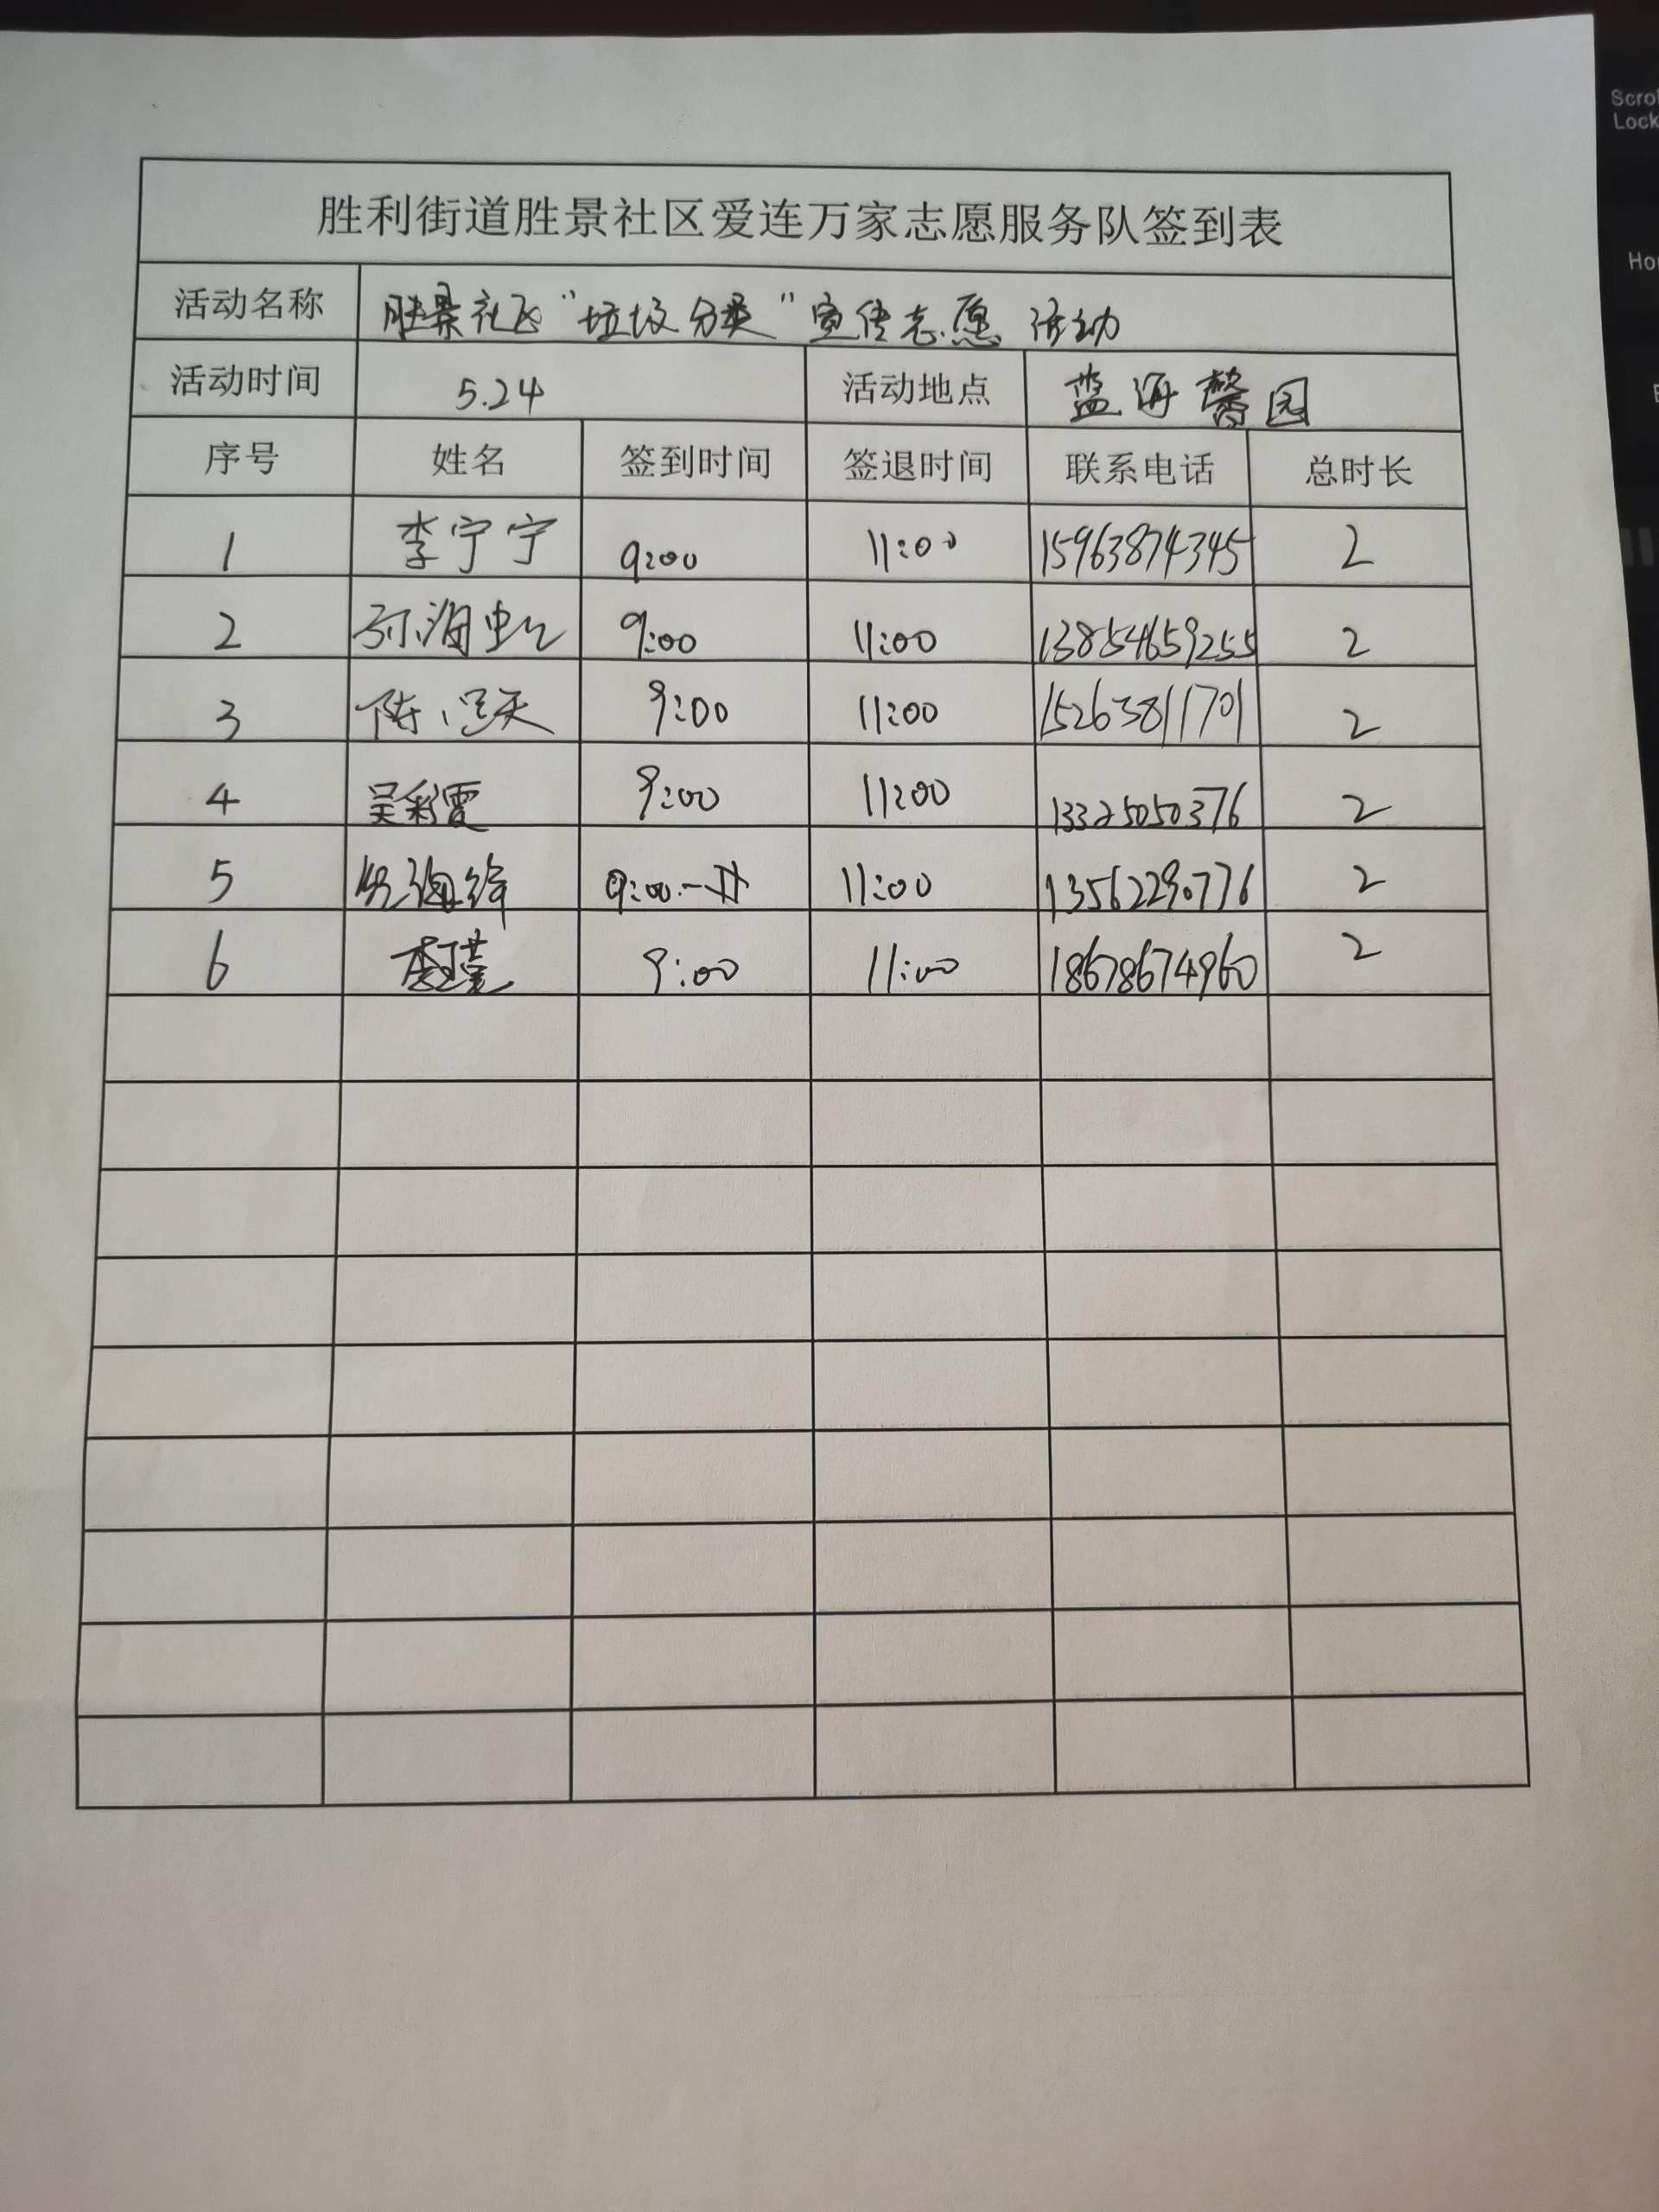 胜利街道胜景社区爱连万家志愿服务队签到表
活动名称 胜景社区“垃圾分类”宣传志愿活动
活动时间 5.24 活动地点 蓝海馨园
序号 姓名 签到时间 签退时间 联系电话 总时长
1 李宁宁 9:00 11:00 15963874345 2
2 孙海虹 9:00 11:00 13854659255 2
3 陈 9:00 11:00 15263811701 2
4 吴彩霞 9:00 11:00 13325050376 2
5 9:00 11:00 13562290776 2
6 李瑾 9:00 11:00 18678674960 2
Scrol
Lock
Ho